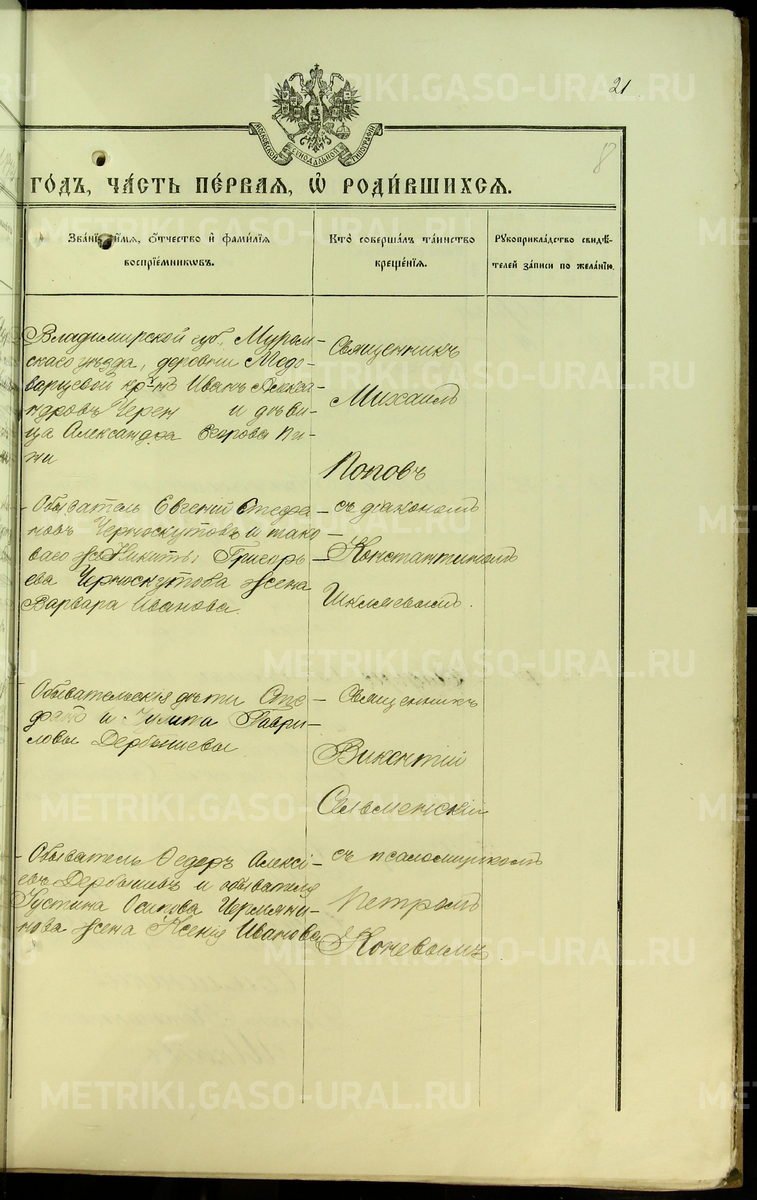 21
8
МОСКОВСКОЙ СИНОДАЛЬНОЙ ТИПОГРАФІИ
ГОДЪ, ЧАСТЬ ПЕРВАЯ, Ѡ РОДИВШИХСЯ.
Званіе, имя, отчество и фамилія воспріемниковъ.
Кто совершалъ таинство крещенія.
Рукоприкладство свидѣтелей записи по желанію.
Владимирской губ. Муром-
скаго уѣзда, деревни Медо-
варцевой кр-нъ Иванъ Алекса-
ндровъ Черен и дѣви-
ца Александра
Священникъ
Михаилъ
Поповъ
Обыватель Евгеній Стефа-
новъ Черноскутовъ и тако-
ваго же Никиты Григорь-
ева Черноскутова жена
Варвара Иванова.
съ діакономъ
Константиномъ
Шиляевымъ.
Обывательскія дѣти Сте-
и Гаври-
ловы Дербышевы
Священникъ
Викентій
Сельменскій
Обыватель Ѳедоръ Алексі-
евъ Дербышевъ и обывателя
Густина Осипова Чермяни-
нова жена Ксенія Иванова
съ псаломщикомъ
Петромъ
Коневымъ
METRIKI.GASO-URAL.RU